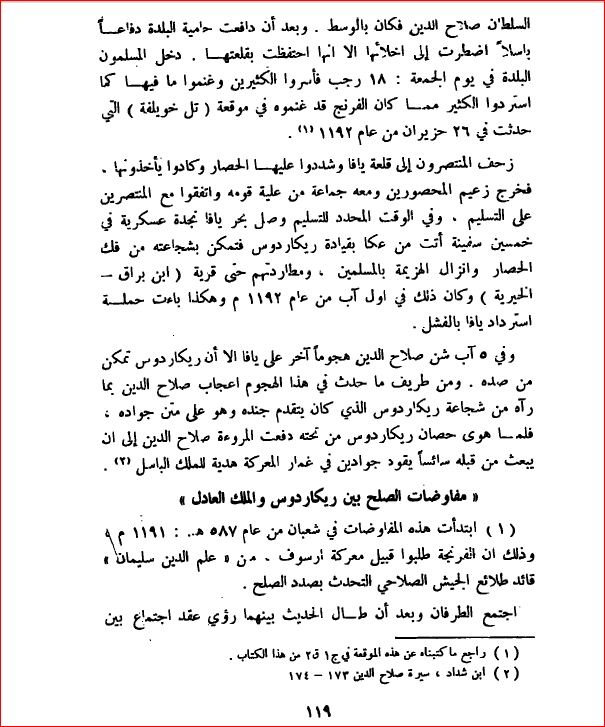 السلطان صلاح الدين فكان بالوسط . وبعد أن دافعت حامية البلدة دفاعـــاً
باسلاً اضطرت إلى اخلائها الا انها احتفظت بقلعتهــا . دخل المسلمون
البلدة في يوم الجمعة : ١٨ رجب فأسروا الكثيرين وغنموا ما فيهــا كما
استردوا الكثير ممــا كان الفرنج قد غنموه في موقعة ( تل خويلفة ) التي
حدثت في ٢٦ حزيران من عام ١١٩٢ (١) .
زحف المنتصرون إلى قلعة يافا وشددوا عليهــا الحصار وكادوا يأخذونها .
فخرج زعيم المحصورين ومعه جماعة من علية قومه واتفقوا مع المنتصرين
على التسليم . وفي الوقت المحدد للتسليم وصل بحر يافا نجدة عسكرية في
خمسين سفينة أتت من عكا بقيادة ريكاردوس فتمكن بشجاعته من فك
الحصار وانزال الهزيمة بالمسلمين ، ومطاردتهم حتى قرية ( ابن براق –
الخيرية ) وكان ذلك في اول آب من عام ١١٩٢ م وهكذا باءت حملــة
استرداد يافا بالفشل .
وفي ٥ آب شن صلاح الدين هجوماً آخر على يافا الا أن ريكاردوس تمكن
من صده . ومن طريف ما حدث في هذا الهجوم اعجاب صلاح الدين بما
رآه من شجاعة ريكاردوس الذي كان يتقدم جنده وهو على متن جواده ،
فلمــا هوى حصان ريكاردوس من تحته دفعت المروءة صلاح الدين إلى ان
يبعث من قبله سائساً يقود جوادين في غمار المعركة هدية للملك الباسل (٢) .
« مفاوضات الصلح بين ريكاردوس والملك العادل »
( ١ ) ابتدأت هذه المفاوضات في شعبان من عام ٥٨٧ هـ. : ١١٩١ م
وذلك ان الفرنجة طلبوا قبيل معركة ارسوف . من « علم الدين سليمان »
قائد طلائع الجيش الصلاحي التحدث بصدد الصلح .
اجتمع الطرفان وبعد أن طــال الحديث بينهما رؤي عقد اجتماع بين
( ١ ) راجع ما كتبناه عن هذه الموقعة في ج١ ق٢ من هذا الكتاب .
( ٢ ) ابن شداد ، سيرة صلاح الدين ١٧٣ – ١٧٤
١١٩